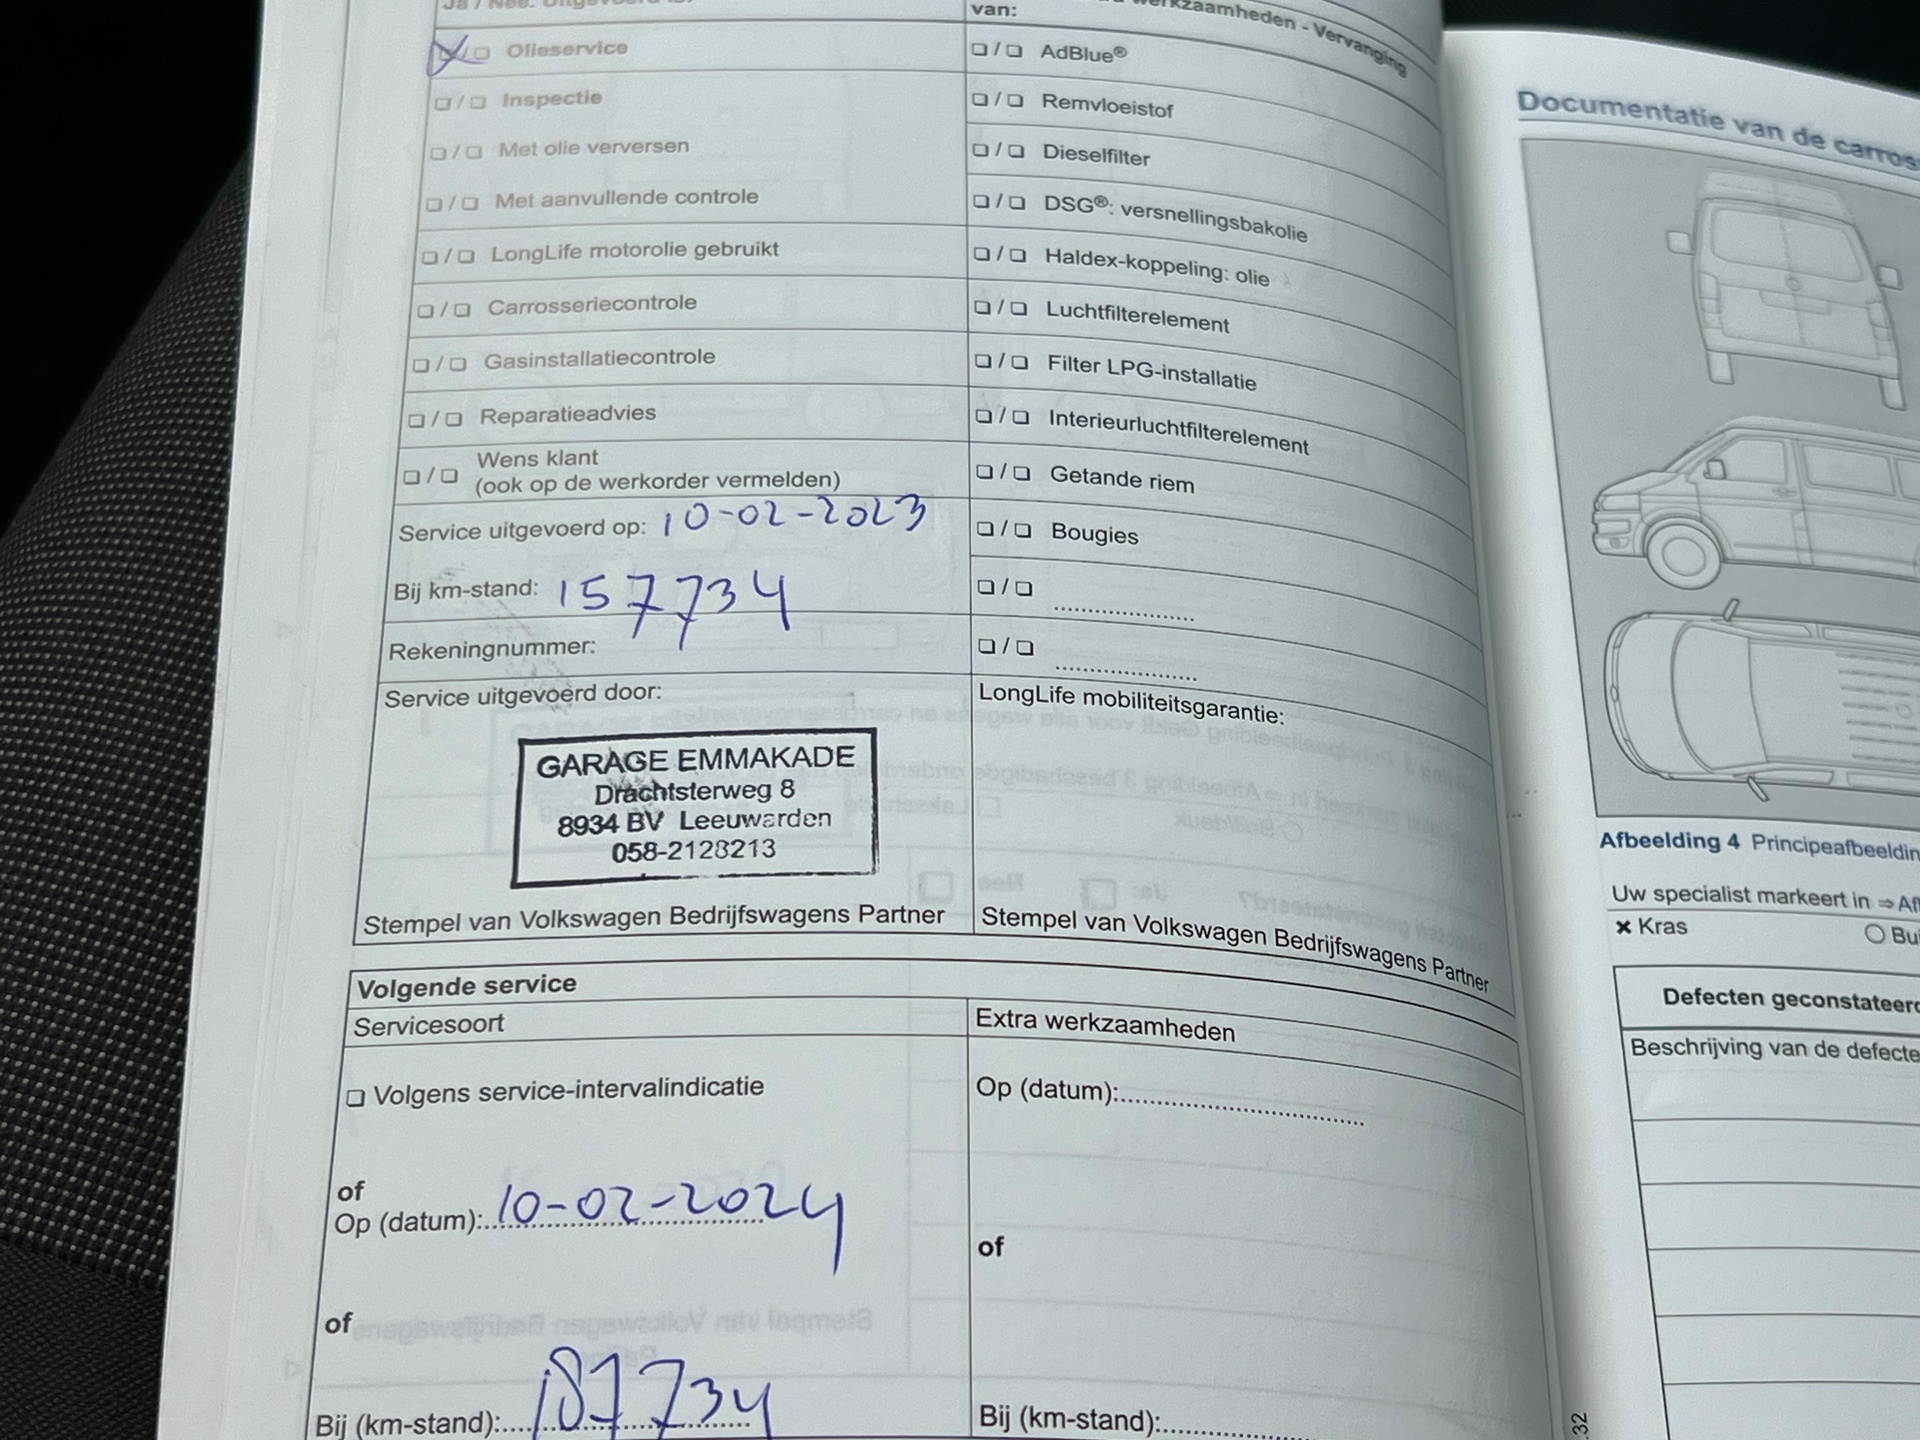 Ja / Nee: Uitgevoerd is:
☒/❏ Olieservice
❏/❏ Inspectie
❏/❏ Met olie verversen
❏/❏ Met aanvullende controle
❏/❏ LongLife motorolie gebruikt
❏/❏ Carrosseriecontrole
❏/❏ Gasinstallatiecontrole
❏/❏ Reparatieadvies
❏/❏ Wens klant
(ook op de werkorder vermelden)
Service uitgevoerd op: 10-02-2023
Bij km-stand: 157734
Rekeningnummer:
Service uitgevoerd door:
GARAGE EMMAKADE
Drachtsterweg 8
8934 BV Leeuwarden
058-2128213
Stempel van Volkswagen Bedrijfswagens Partner
werkzaamheden - Vervanging
van:
❏/❏ AdBlue®
❏/❏ Remvloeistof
❏/❏ Dieselfilter
❏/❏ DSG®: versnellingsbakolie
❏/❏ Haldex-koppeling: olie
❏/❏ Luchtfilterelement
❏/❏ Filter LPG-installatie
❏/❏ Interieurluchtfilterelement
❏/❏ Getande riem
❏/❏ Bougies
❏/❏ ....................
❏/❏ ....................
LongLife mobiliteitsgarantie:
Stempel van Volkswagen Bedrijfswagens Partner
Volgende service
Servicesoort
❏ Volgens service-intervalindicatie
of
Op (datum): 10-02-2024
of
Bij (km-stand): 187734
Extra werkzaamheden
Op (datum):
of
Bij (km-stand):
Documentatie van de carros
Afbeelding 4 Principeafbeeldin
Uw specialist markeert in ⇒ Af
✖ Kras
○ Bu
Defecten geconstateerd
Beschrijving van de defecte
.32